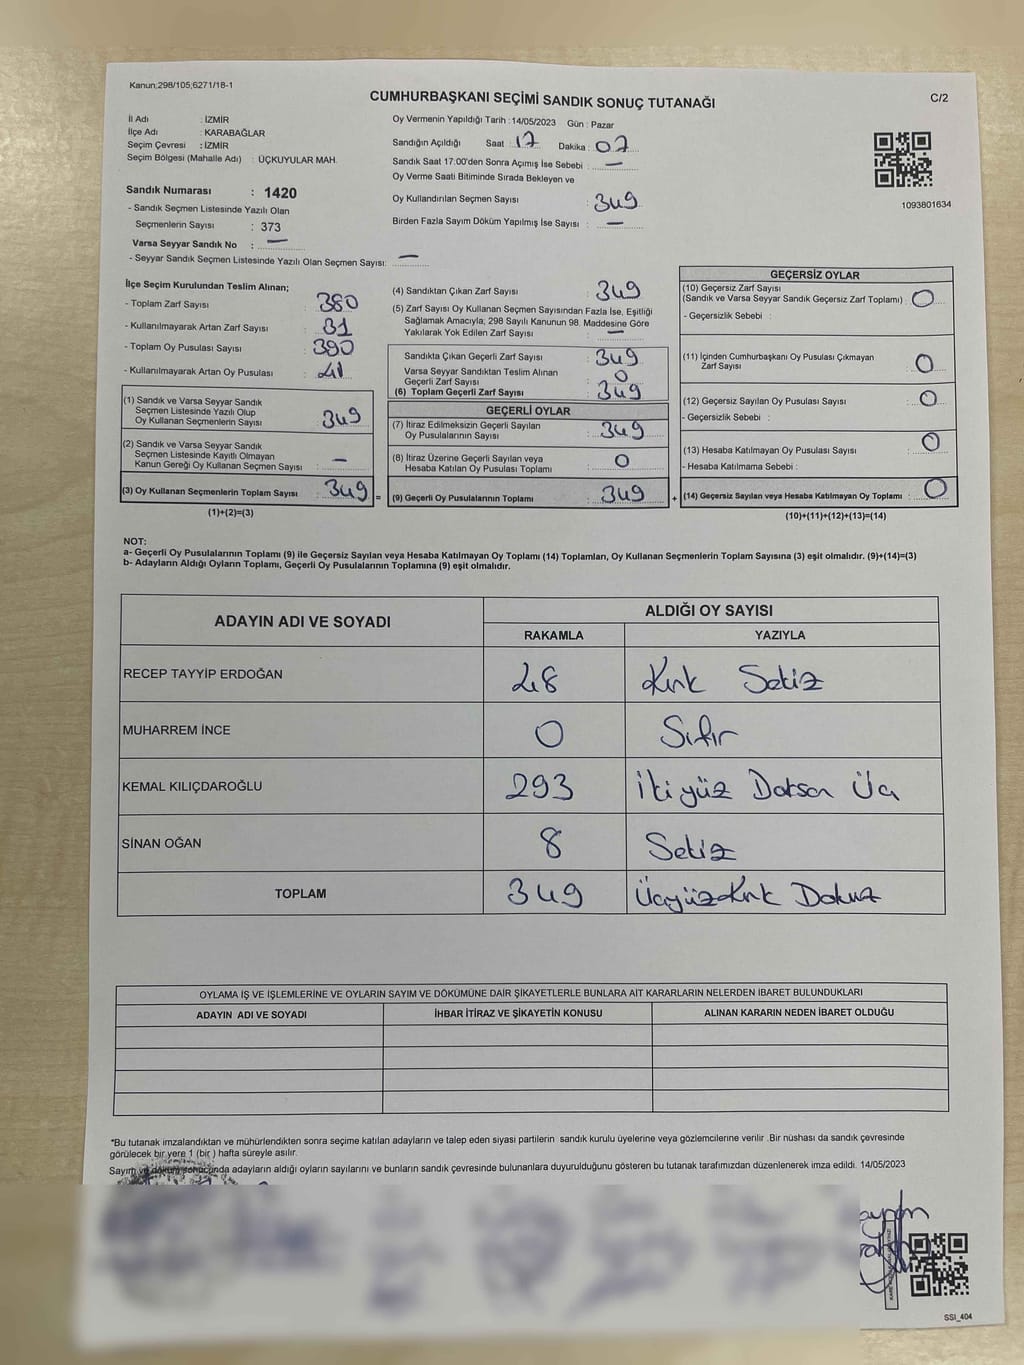 Kanun;298/105;6271/18-1
CUMHURBAŞKANI SEÇİMİ SANDIK SONUÇ TUTANAĞI
C/2
İl Adı : İZMİR
İlçe Adı : KARABAĞLAR
Seçim Çevresi : İZMİR
Seçim Bölgesi (Mahalle Adı) : ÜÇKUYULAR MAH.
Sandık Numarası : 1420
- Sandık Seçmen Listesinde Yazılı Olan
Seçmenlerin Sayısı : 373
Varsa Seyyar Sandık No : —
- Seyyar Sandık Seçmen Listesinde Yazılı Olan Seçmen Sayısı: —
Oy Vermenin Yapıldığı Tarih :14/05/2023 Gün : Pazar
Sandığın Açıldığı Saat : 17 Dakika : 07
Sandık Saat 17:00'den Sonra Açımış İse Sebebi : —
Oy Verme Saati Bitiminde Sırada Bekleyen ve
Oy Kullandırılan Seçmen Sayısı : 349
Birden Fazla Sayım Döküm Yapılmış İse Sayısı : —
1093801634
İlçe Seçim Kurulundan Teslim Alınan;
- Toplam Zarf Sayısı : 380
- Kullanılmayarak Artan Zarf Sayısı : 31
- Toplam Oy Pusulası Sayısı : 390
- Kullanılmayarak Artan Oy Pusulası : 41
(1) Sandık ve Varsa Seyyar Sandık
Seçmen Listesinde Yazılı Olup
Oy Kullanan Seçmenlerin Sayısı : 349
(2) Sandık ve Varsa Seyyar Sandık
Seçmen Listesinde Kayıtlı Olmayan
Kanun Gereği Oy Kullanan Seçmen Sayısı : —
(3) Oy Kullanan Seçmenlerin Toplam Sayısı : 349 =
(1)+(2)=(3)
(4) Sandıktan Çıkan Zarf Sayısı : 349
(5) Zarf Sayısı Oy Kullanan Seçmen Sayısından Fazla İse, Eşitliği
Sağlamak Amacıyla; 298 Sayılı Kanunun 98. Maddesine Göre
Yakılarak Yok Edilen Zarf Sayısı : —
Sandıkta Çıkan Geçerli Zarf Sayısı : 349
Varsa Seyyar Sandıktan Teslim Alınan
Geçerli Zarf Sayısı : 0
(6) Toplam Geçerli Zarf Sayısı : 349
GEÇERLİ OYLAR
(7) İtiraz Edilmeksizin Geçerli Sayılan
Oy Pusulalarının Sayısı : 349
(8) İtiraz Üzerine Geçerli Sayılan veya
Hesaba Katılan Oy Pusulası Toplamı : 0
(9) Geçerli Oy Pusulalarının Toplamı : 349 +
GEÇERSİZ OYLAR
(10) Geçersiz Zarf Sayısı
(Sandık ve Varsa Seyyar Sandık Geçersiz Zarf Toplamı) : 0
- Geçersizlik Sebebi :
(11) İçinden Cumhurbaşkanı Oy Pusulası Çıkmayan
Zarf Sayısı : 0
(12) Geçersiz Sayılan Oy Pusulası Sayısı : 0
- Geçersizlik Sebebi :
(13) Hesaba Katılmayan Oy Pusulası Sayısı : 0
- Hesaba Katılmama Sebebi :
(14) Geçersiz Sayılan veya Hesaba Katılmayan Oy Toplamı : 0
(10)+(11)+(12)+(13)=(14)
NOT:
a- Geçerli Oy Pusulalarının Toplamı (9) ile Geçersiz Sayılan veya Hesaba Katılmayan Oy Toplamı (14) Toplamları, Oy Kullanan Seçmenlerin Toplam Sayısına (3) eşit olmalıdır. (9)+(14)=(3)
b- Adayların Aldığı Oyların Toplamı, Geçerli Oy Pusulalarının Toplamına (9) eşit olmalıdır.
ADAYIN ADI VE SOYADI ALDIĞI OY SAYISI
RAKAMLA YAZIYLA
RECEP TAYYİP ERDOĞAN 48 Kırk Sekiz
MUHARREM İNCE 0 Sıfır
KEMAL KILIÇDAROĞLU 293 İkiyüz Doksan Üç
SİNAN OĞAN 8 Sekiz
TOPLAM 349 ÜçyüzKırk Dokuz
OYLAMA İŞ VE İŞLEMLERİNE VE OYLARIN SAYIM VE DÖKÜMÜNE DAİR ŞİKAYETLERLE BUNLARA AİT KARARLARIN NELERDEN İBARET BULUNDUKLARI
ADAYIN ADI VE SOYADI İHBAR İTİRAZ VE ŞİKAYETİN KONUSU ALINAN KARARIN NEDEN İBARET OLDUĞU
*Bu tutanak imzalandıktan ve mühürlendikten sonra seçime katılan adayların ve talep eden siyasi partilerin sandık kurulu üyelerine veya gözlemcilerine verilir .Bir nüshası da sandık çevresinde
görülecek bir yere 1 (bir ) hafta süreyle asılır.
Sayım ve döküm sonucunda adayların aldığı oyların sayılarını ve bunların sandık çevresinde bulunanlara duyurulduğunu gösteren bu tutanak tarafımızdan düzenlenerek imza edildi. 14/05/2023
SSI_404